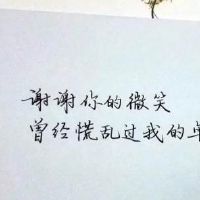 谢谢你的微笑
曾经慌乱过我的